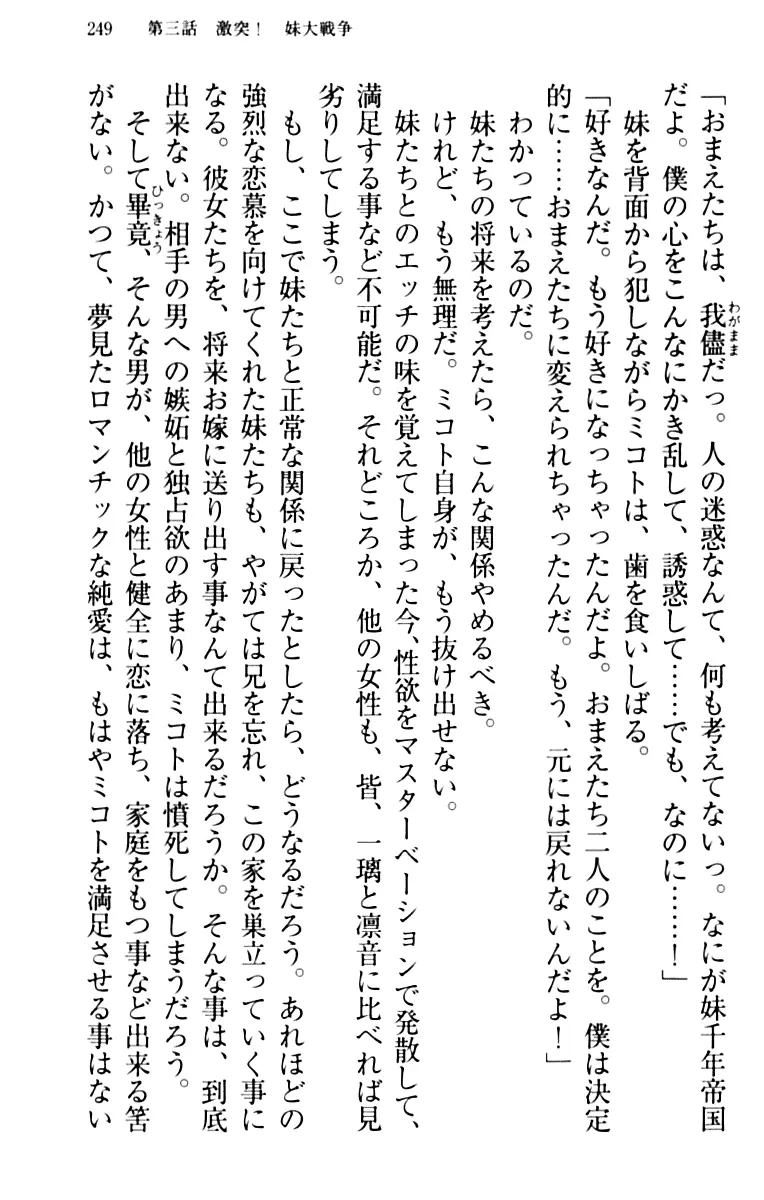 249　第三話　激突！　妹大戦争
「おまえたちは、我儘だっ。人の迷惑なんて、何も考えてないっ。なにが妹千年帝国
だよ。僕の心をこんなにかき乱して、誘惑して……でも、なのに……！」
　妹を背面から犯しながらミコトは、歯を食いしばる。
「好きなんだ。もう好きになっちゃったんだよ。おまえたち二人のことを。僕は決定
的に……おまえたちに変えられちゃったんだ。もう、元には戻れないんだよ！」
　わかっているのだ。
　妹たちの将来を考えたら、こんな関係やめるべき。
　けれど、もう無理だ。ミコト自身が、もう抜け出せない。
　妹たちとのエッチの味を覚えてしまった今、性欲をマスターベーションで発散して、
満足する事など不可能だ。それどころか、他の女性も、皆、一璃と凛音に比べれば見
劣りしてしまう。
　もし、ここで妹たちと正常な関係に戻ったとしたら、どうなるだろう。あれほどの
強烈な恋慕を向けてくれた妹たちも、やがては兄を忘れ、この家を巣立っていく事に
なる。彼女たちを、将来お嫁に送り出す事なんて出来るだろうか。そんな事は、到底
出来ない。相手の男への嫉妬と独占欲のあまり、ミコトは憤死してしまうだろう。
　そして畢竟、そんな男が、他の女性と健全に恋に落ち、家庭をもつ事など出来る筈
がない。かつて、夢見たロマンチックな純愛は、もはやミコトを満足させる事はない